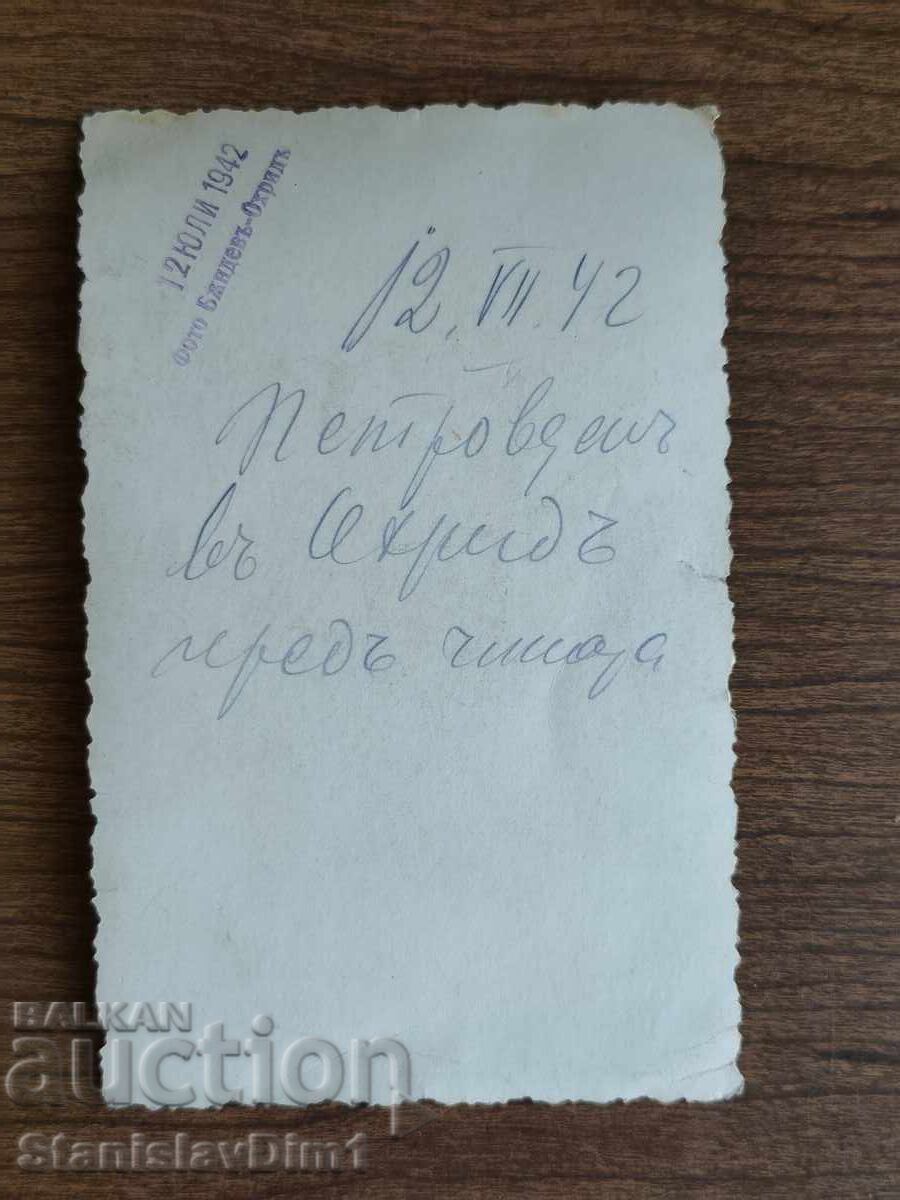 12 ЮЛИ 1942
Фото Бѫндевъ-Охридъ
12. VII. 42
Петровденъ
въ Охридъ
предъ чинара
BALKAN
auction
StanislavDim1